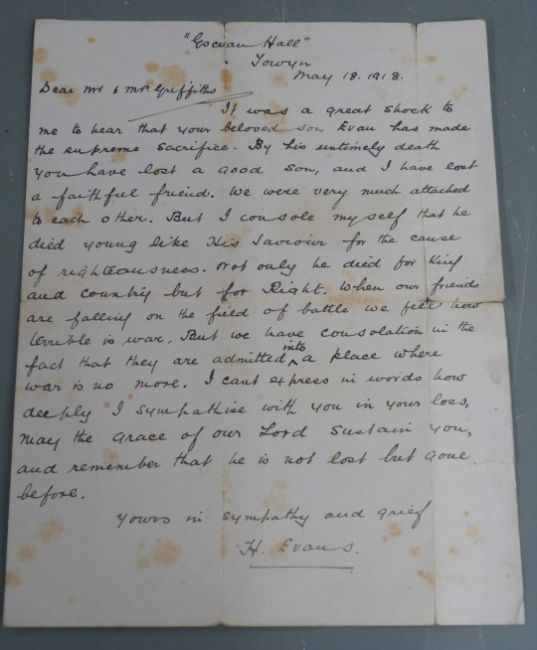 "Escuan Hall"
Towyn
May 18. 1918.
Dear Mr & Mrs Griffiths
It was a great shock to
me to hear that your beloved son Evan has made
the supreme sacrifice. By his untimely death
you have lost a good son, and I have lost
a faithful friend. We were very much attached
to each other. But I console myself that he
died young like His Saviour for the cause
of righteousness. Not only he died for King
and country but for Right. When our friends
are falling on the field of battle we feel how
terrible is war. But we have consolation in the
fact that they are admitted into a place where
war is no more. I cant express in words how
deeply I sympathise with you in your loss,
May the grace of our Lord sustain you,
and remember that he is not lost but gone
before.
Yours in sympathy and grief
H. Evans.